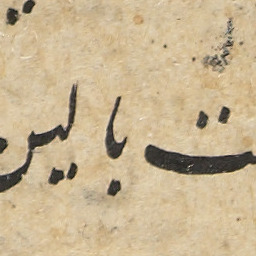 ت بالین